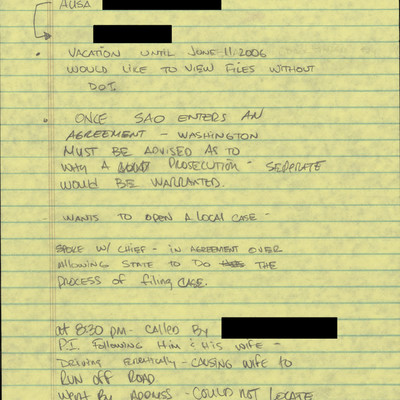 AUSA
• VACATION UNTIL JUNE 11, 2006
WOULD LIKE TO VIEW FILES WITHOUT
DOT.
• ONCE SAO ENTERS AN
AGREEMENT - WASHINGTON
MUST BE ADVISED AS TO
WHY A PROSECUTION - SEPERATE
WOULD BE WARRANTED.
- WANTS TO OPEN A LOCAL CASE -
SPOKE W/ CHIEF - IN AGREEMENT OVER
Allowing STATE TO DO THE
PROCESS OF filing CASE.
at 8:30 pm - CALLED BY
P.I. Following Him & His wife -
DRIVING ERRATICALLY - CAUSING WIFE TO
RUN OFF ROAD.
WENT BY ADDRESS - COULD NOT LOCATE